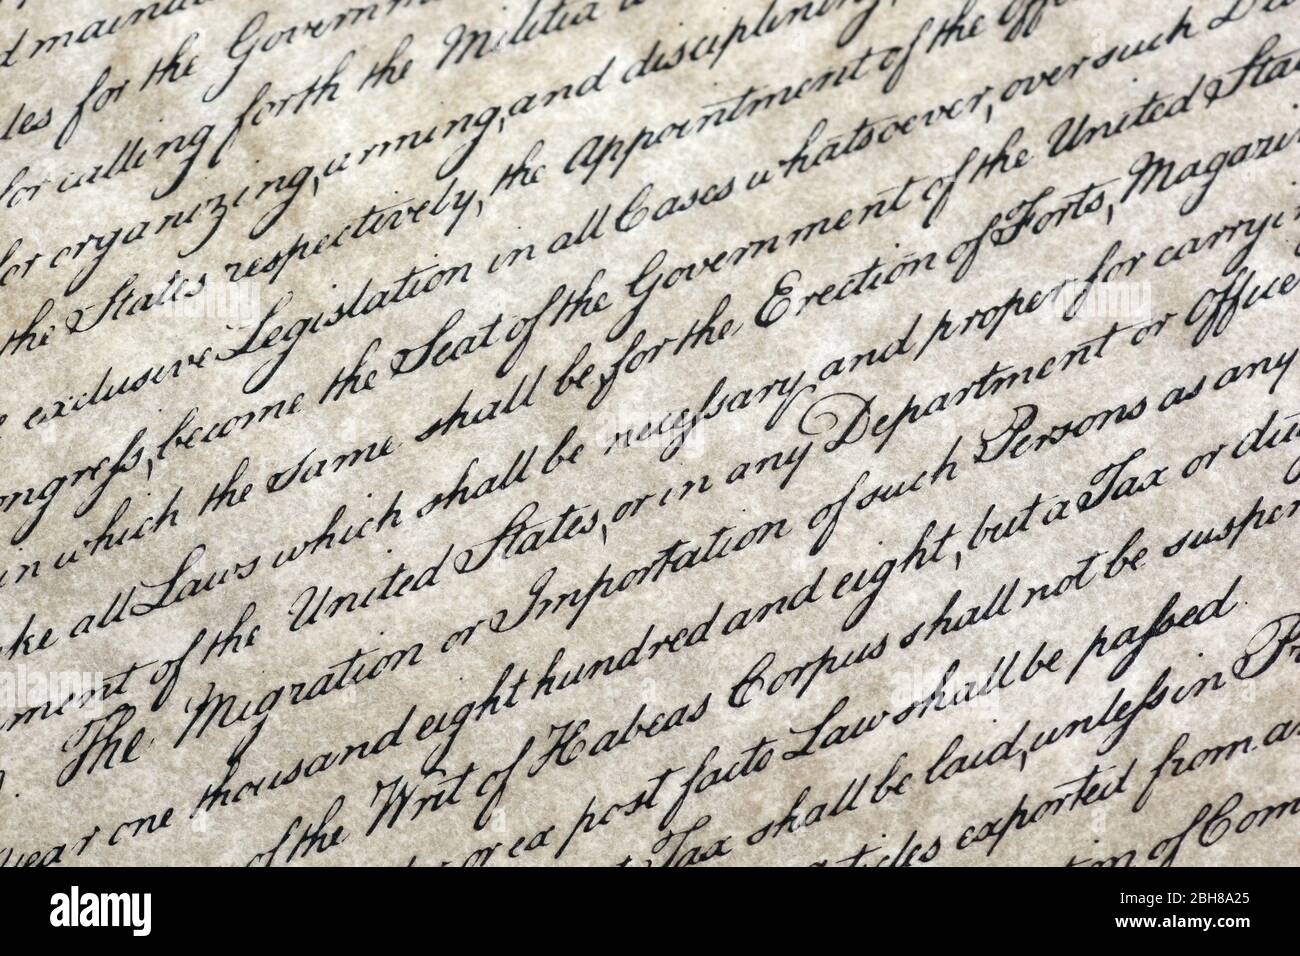 d maintain
les for the Governm
for calling forth the Militia
for organizing, arming, and disciplining,
the States respectively, the Appointment of the Off
e exclusive Legislation in all Cases whatsoever, over such Dis
ongreſs, become the Seat of the Government of the United Stat
in which the Same shall be, for the Erection of Forts, Magazin
ke all Laws which shall be neceſsary and proper for carryi
ment of the United States, or in any Department or Office
The Migration or Importation of such Persons as any
year one thousand eight hundred and eight, but a Tax or dut
of the Writ of Habeas Corpus shall not be suspen
or ex post facto Law shall be paſsed.
Tax shall be laid, unleſs in Pr
articles exported from a
n of Com
alamy
Image ID: 2BH8A25
www.alamy.com